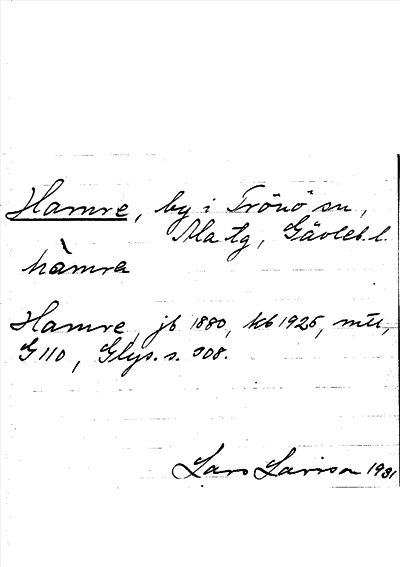 Hamre, by i Trönö sn,
Ala tg, Gävleb.l.
hàmra
Hamre, jb 1880, kb 1925, mtl,
G 110, Glys. s. 908.
Lars Larsson 1931